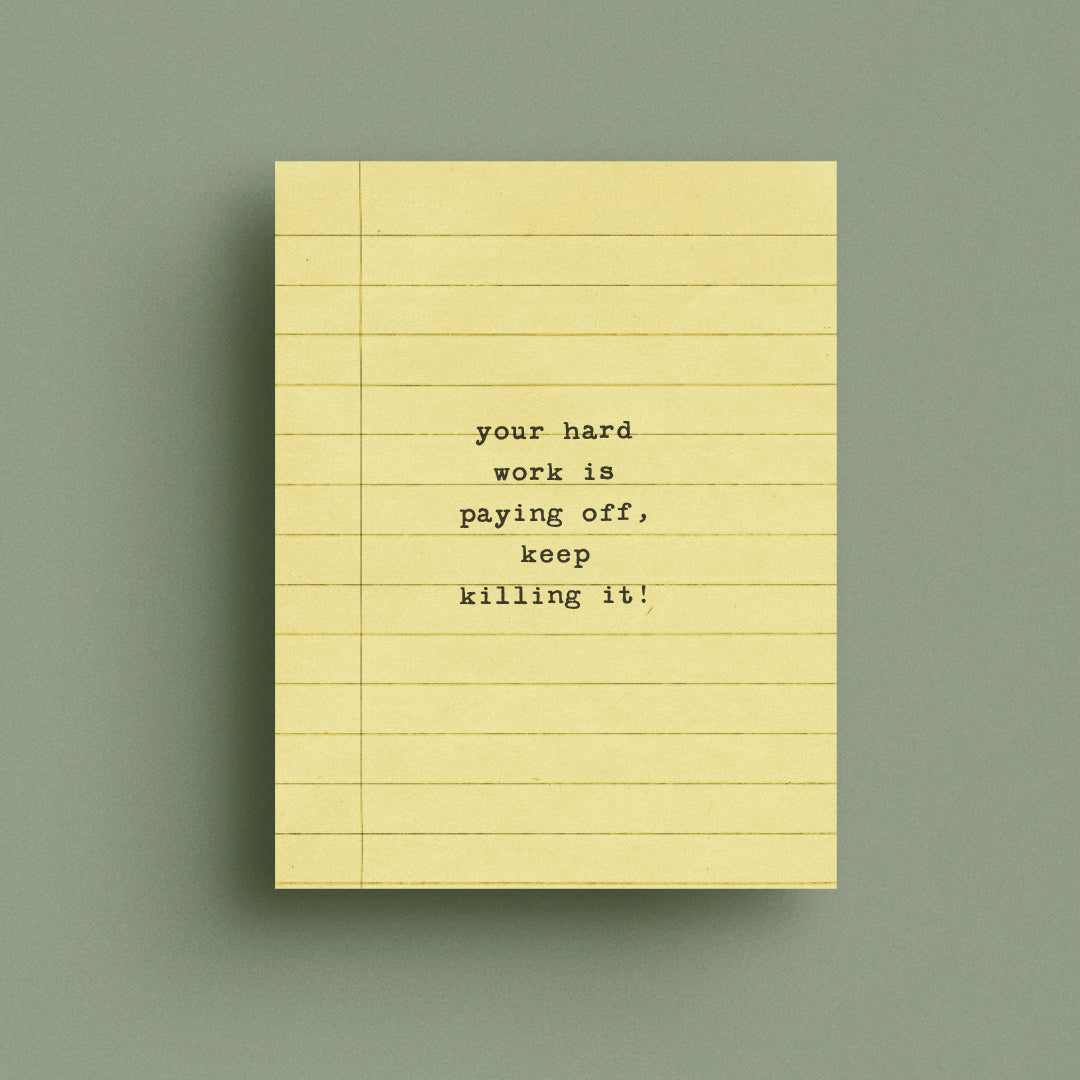 your hard
work is
paying off,
keep
killing it!